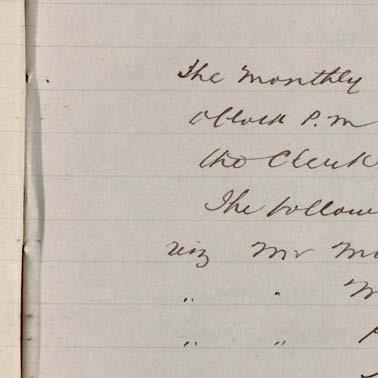 The Monthly
oClock P.M
the Clerk
The follow
viz Mr Mo
" " M
" "